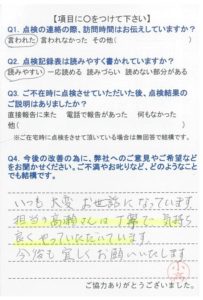 【項目に〇をつけて下さい】
Q1. 点検の連絡の際、訪問時間はお伝えしていますか?
言われた 言われなかった その他( )
Q2. 点検記録表は読みやすく書かれていますか?
読みやすい 一応読める 読みづらい 読めない部分がある
Q3. ご不在時に点検させていただいた後、点検結果の
ご説明はありましたか?
直接報告に来た 電話で報告があった 何もなかった
他( )
※ご在宅時に点検をさせて頂いている場合は無回答で結構です。
Q4. 今後の改善の為に、弊社へのご意見やご希望など
をお聞かせください。ご不満やお叱りなど、どのようなこと
でも結構です。
いつも大変お世話になっています。
担当の高瀬さんは丁寧で気持ち
良くやっていただいています。
今后も宜しくお願いいたします
ご協力ありがとうございました。